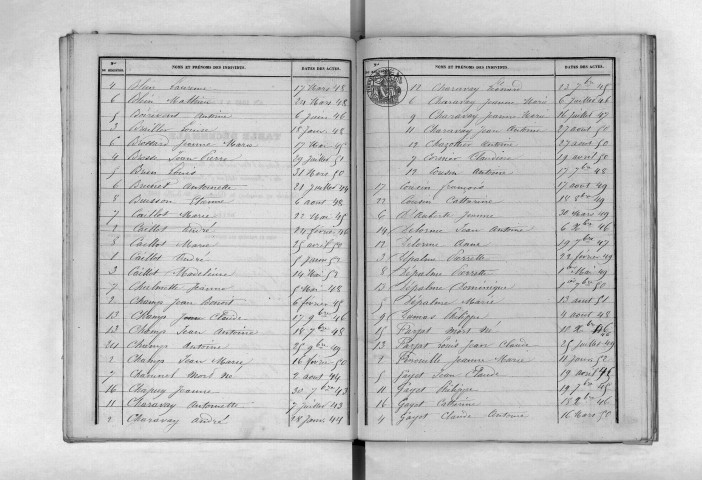 Nos DE REGISTRE. NOMS ET PRÉNOMS DES INDIVIDUS. DATES DES ACTES.
4 Blein Laurence 17 Mars 48
6 Blein Mathieu 24 Mars 48
5 Antoine 6 juin 46
3 Louise 18 janv 48
6 Jeanne Marie 17 Mai 45
4 Jean Pierre 29 juillet 51
5 Louis 31 Mars 50
6 Brunet Antoinette 21 juillet 44
8 Buisson Etienne 6 aout 48
7 Caillot Marie 22 Mai 45
2 Caillot André 24 février 46
3 Caillot Marie 25 avril 50
1 Caillot André 5 janv 52
3 Caillot Madeleine 14 Mai 52
7 Jeanne 5 Mai 48
2 Champs Jean Benoit 6 février 45
13 Champs Jean Claude 17 9bre 46
13 Champs Jean Antoine 18 7bre 48
24 Champs Antoine 25 9bre 49
2 Champs Jean Marie 16 février 50
7 mort né 2 aout 44
16 Chapuy Jeanne 30 7bre 43
11 Charavay Antoinette 7 juillet 43
2 Charavay André 28 janv 44
NOMS ET PRÉNOMS DES INDIVIDUS. DATES DES ACTES.
12 Charavay Léonard 22 7bre 45
6 Charavay Jeanne Marie 6 juillet 46
9 Charavay Jeanne Marie 16 juillet 47
11 Charavay Jean Antoine 27 aout 50
12 Antoine 27 aout 50
7 Claudine 19 avril 50
12 Cousin Antoine 17 7bre 48
17 Cousin françois 17 aout 49
22 Cousin Catherine 18 8bre 49
6 Jeanne 30 Mars 49
14 Delorme Jean Antoine 6 Xbre 46
12 Delorme 19 7bre 47
3 Pierrette 22 février 49
8 Pierrette 1er Mai 49
13 Dominique 1er 7bre 50
5 Marie 13 aout 51
9 Dumas Philippe 4 aout 48
15 Farget mort né 18 Xbre 46
13 Farget Louis jean Claude 25 juillet 49
2 Jeanne Marie 11 janv 52
5 Gayet Jean Claude 19 avril 45
11 Gayet Philippe 19 7bre 45
16 Gayet Catherine 18 Xbre 46
4 Gayet Claude Antoine 16 Mars 50